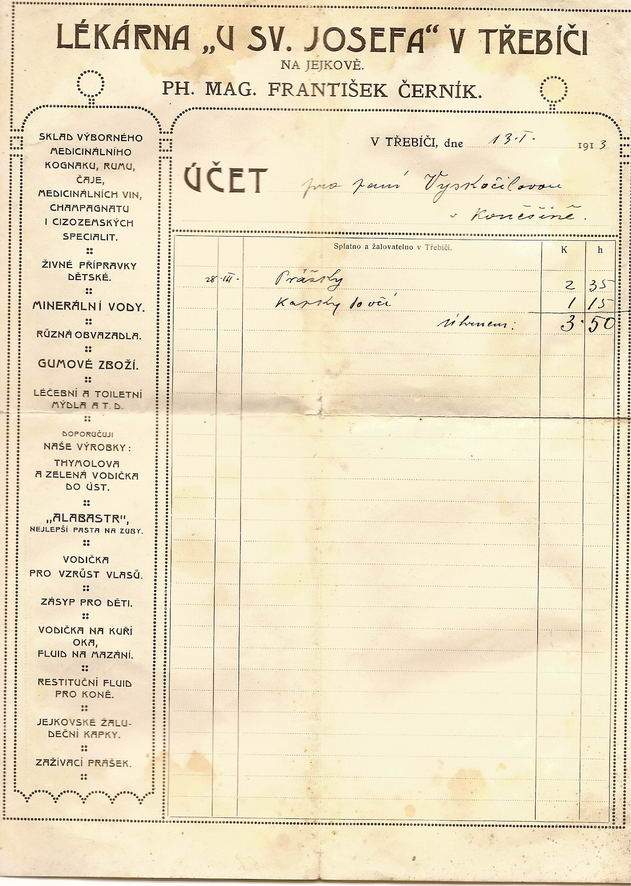 LÉKÁRNA „U SV. JOSEFA“ V TŘEBÍČI
NA JEJKOVĚ.
PH. MAG. FRANTIŠEK ČERNÍK.
SKLAD VÝBORNÉHO
MEDICINÁLNÍHO
KOGNAKU, RUMU,
ČAJE,
MEDICINÁLNÍCH VIN,
CHAMPAGNATU
I CIZOZEMSKÝCH
SPECIALIT.
ŽIVNÉ PŘÍPRAVKY
DĚTSKÉ.
MINERÁLNÍ VODY.
RŮZNÁ OBVAZADLA.
GUMOVÉ ZBOŽÍ.
LÉČEBNÍ A TOILETNÍ
MÝDLA A T. D.
DOPORUČUJI
NAŠE VÝROBKY:
THYMOLOVA
A ZELENÁ VODIČKA
DO ÚST.
„ALABASTR“,
NEJLEPŠÍ PASTA NA ZUBY.
VODIČKA
PRO VZRŮST VLASŮ.
ZÁSYP PRO DĚTI.
VODIČKA NA KUŘÍ
OKA,
FLUID NA MAZÁNÍ.
RESTITUČNÍ FLUID
PRO KONĚ.
JEJKOVSKÉ ŽALU-
DEČNÍ KAPKY.
ZAŽÍVACÍ PRÁŠEK.
V TŘEBÍČI, dne 13.I. 1913
ÚČET pro paní Vyskočilovou
v Koněšíně.
Splatno a žalovatelno v Třebíči. K h
28.III. Prášky 2 35
Kapky do očí 1 15
Úhrnem: 3.50